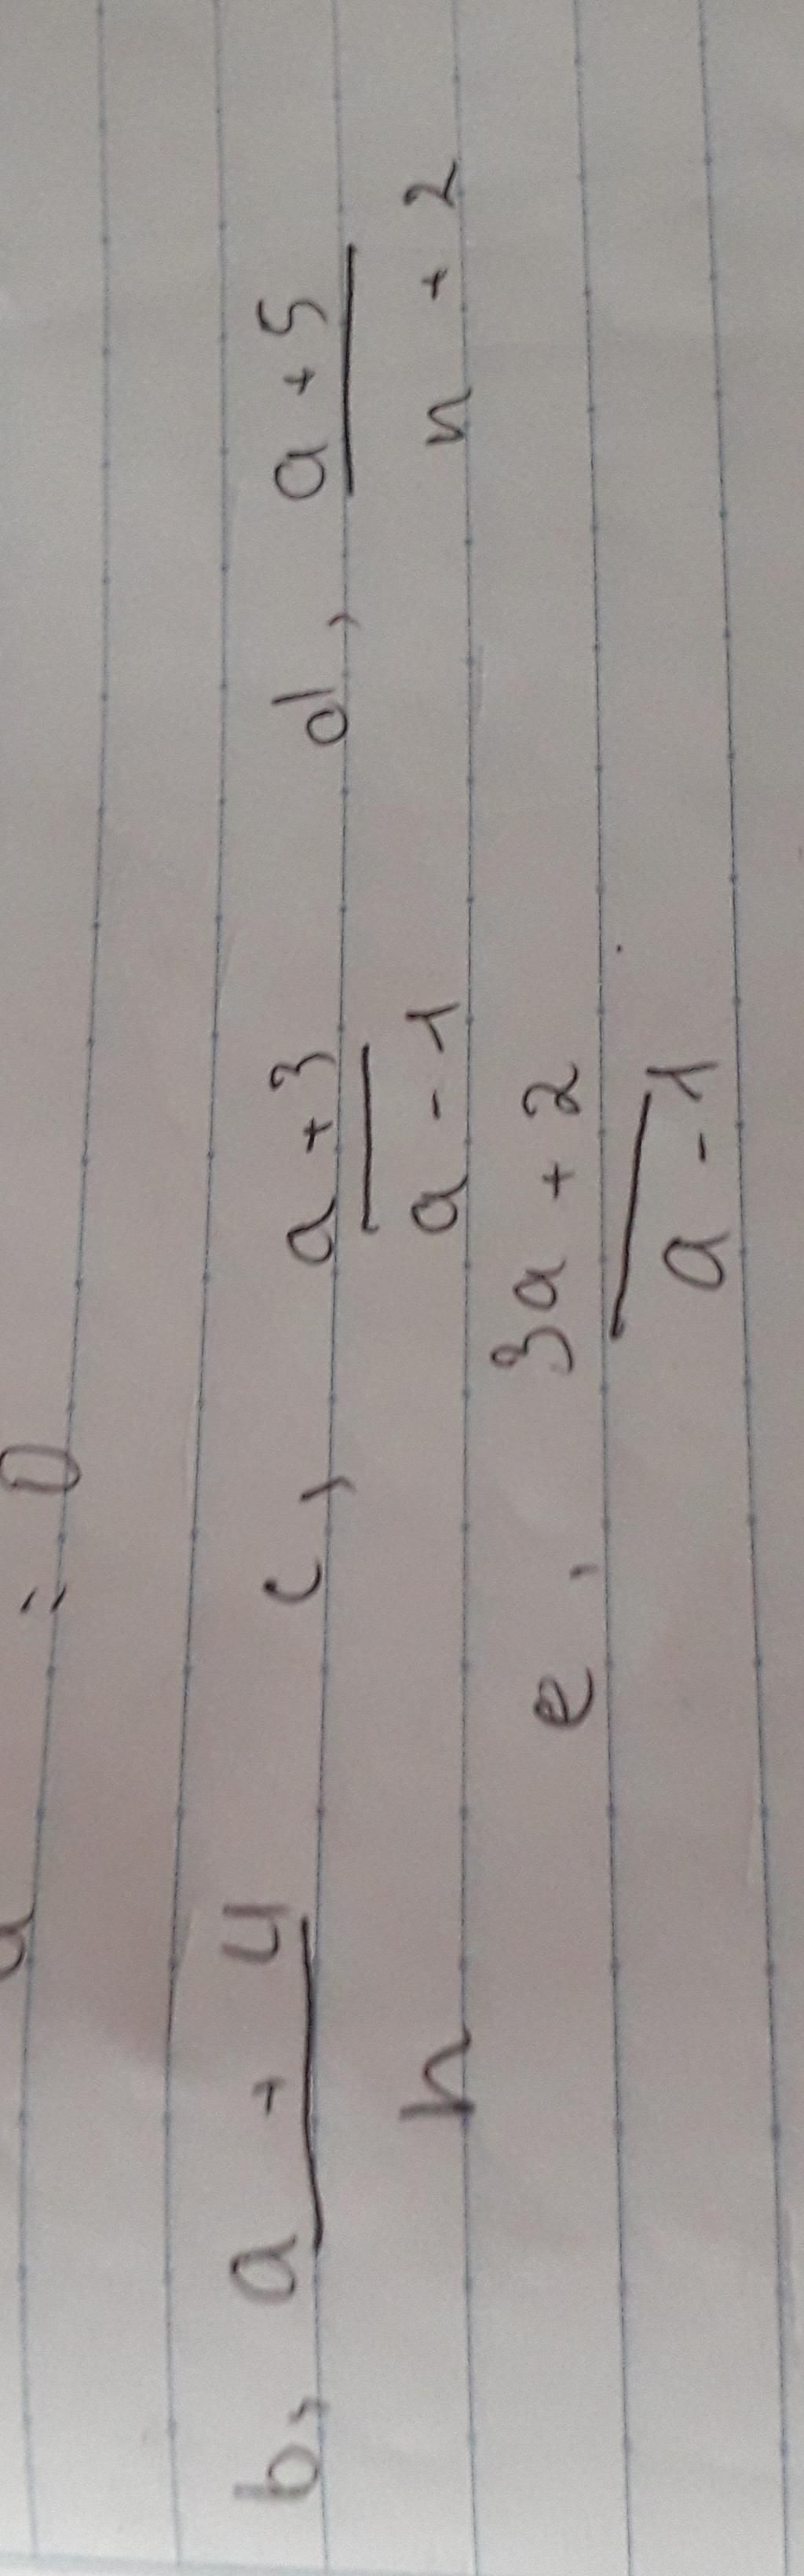 = 0
b, a + 4 / n c, a + 3 / a - 1 d, a + 5 / n + 2
e, 3a + 2 / a - 1